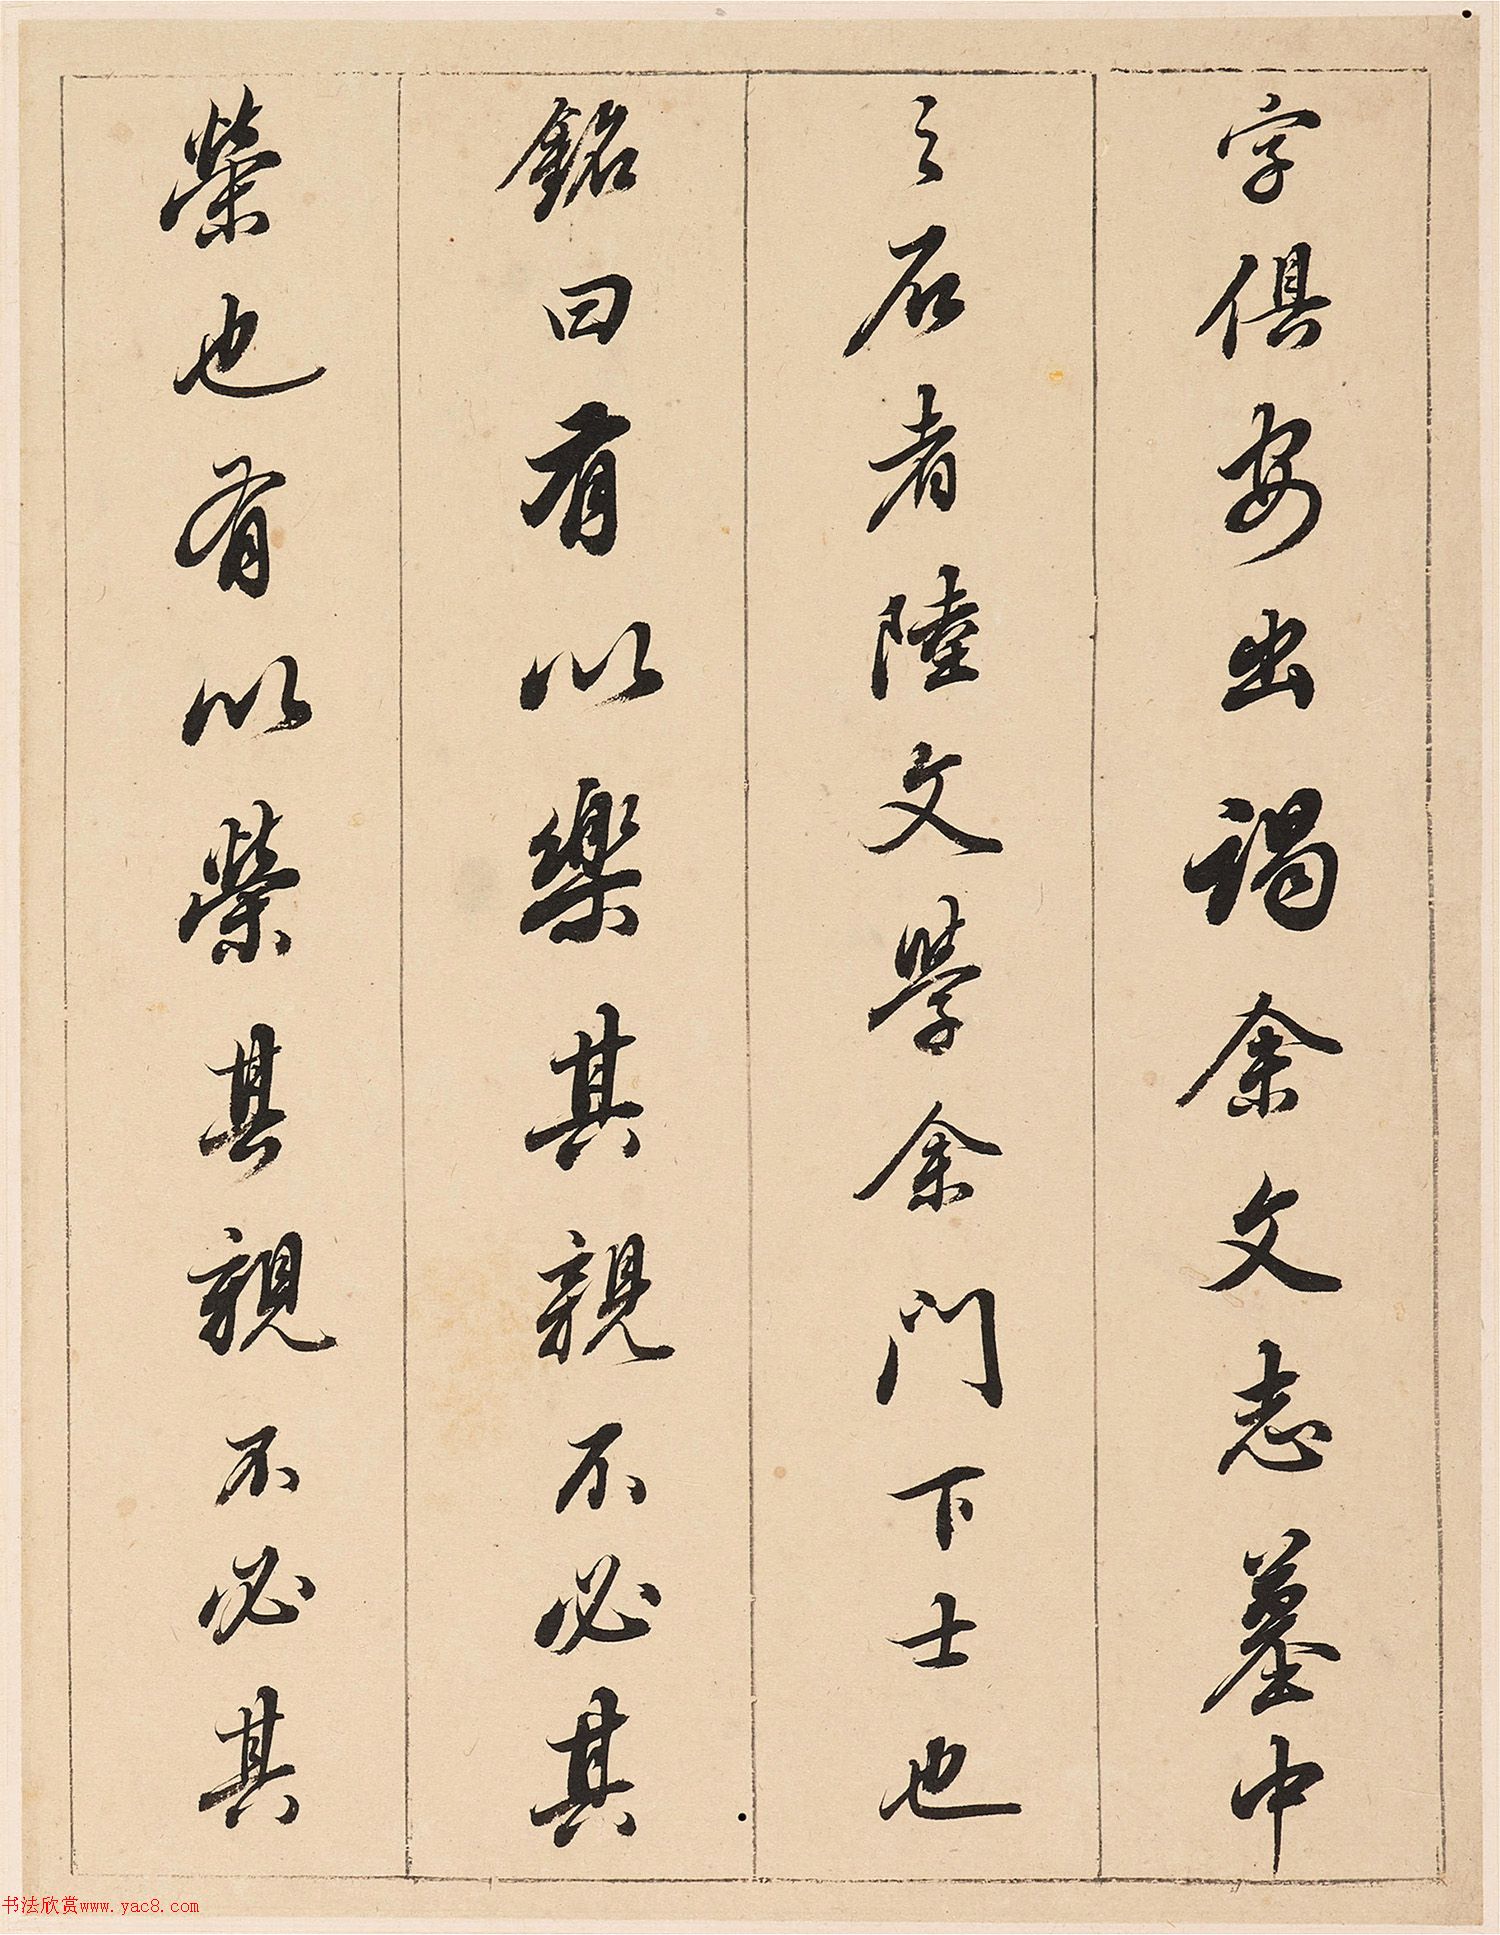 字俱安出謁余文志墓中
之石者陸文學余門下士也
銘曰有以樂其親不必其
榮也有以榮其親不必其
书法欣赏www.yac8.com